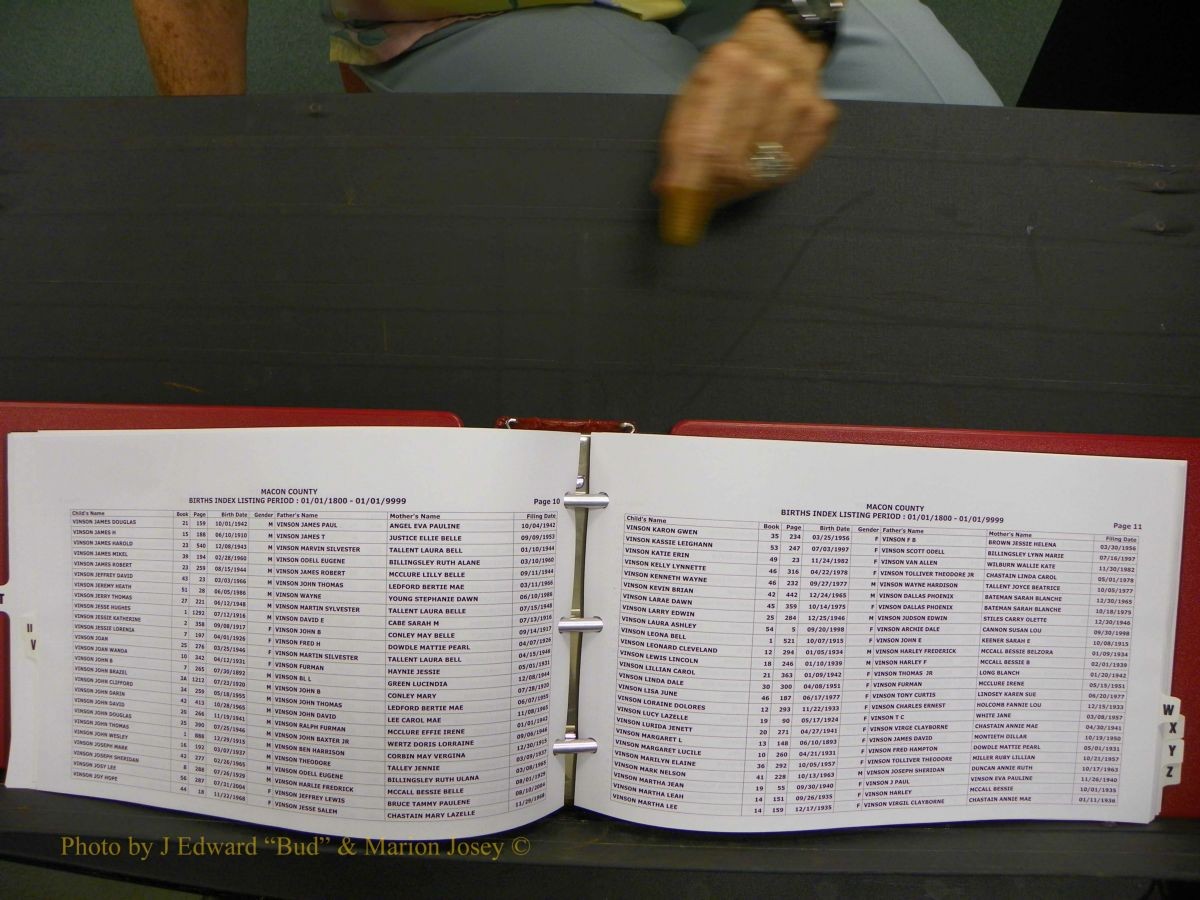 MACON COUNTY
BIRTHS INDEX LISTING PERIOD : 01/01/1800 - 01/01/9999
Page 10
Child's Name Book Page Birth Date Gender Father's Name Mother's Name Filing Date
VINSON JAMES DOUGLAS 21 159 10/01/1942 M VINSON JAMES PAUL ANGEL EVA PAULINE 10/04/1942
VINSON JAMES H 15 188 06/10/1910 M VINSON JAMES T JUSTICE ELLIE BELLE 09/09/1953
VINSON JAMES HAROLD 23 540 12/08/1943 M VINSON MARVIN SILVESTER TALLENT LAURA BELL 01/10/1944
VINSON JAMES MIKEL 39 194 02/28/1960 M VINSON ODELL EUGENE BILLINGSLEY RUTH ALANE 03/10/1960
VINSON JAMES ROBERT 23 259 08/15/1944 M VINSON JAMES ROBERT MCCLURE LILLY BELLE 09/11/1944
VINSON JEFFREY DAVID 43 23 03/03/1966 M VINSON JOHN THOMAS LEDFORD BERTIE MAE 03/11/1966
VINSON JEREMY HEATH 51 28 06/05/1986 M VINSON WAYNE YOUNG STEPHANIE DAWN 06/10/1986
VINSON JERRY THOMAS 27 221 06/12/1948 M VINSON MARTIN SYLVESTER TALLENT LAURA BELLE 07/15/1948
VINSON JESSE HUGHES 1 1292 07/12/1916 M VINSON DAVID E CABE SARAH M 07/13/1916
VINSON JESSIE KATHERINE 2 358 09/08/1917 F VINSON JOHN B CONLEY MAY BELLE 09/14/1917
VINSON JESSIE LORENIA 7 197 04/01/1926 F VINSON FRED H DOWDLE MATTIE PEARL 04/07/1926
VINSON JOAN 25 276 03/25/1946 F VINSON MARTIN SILVESTER TALLENT LAURA BELL 04/15/1946
VINSON JOAN WANDA 10 342 04/12/1931 F VINSON FURMAN HAYNIE JESSIE 05/01/1931
VINSON JOHN B 7 265 07/30/1892 M VINSON BL L GREEN LUCINDIA 12/08/1944
VINSON JOHN BRAZIEL 3A 1212 07/23/1920 M VINSON JOHN B CONLEY MARY 07/28/1920
VINSON JOHN CLIFFORD 34 259 05/18/1955 M VINSON JOHN THOMAS LEDFORD BERTIE MAE 06/07/1955
VINSON JOHN DARIN 42 413 10/28/1965 M VINSON JOHN DAVID LEE CAROL MAE 11/08/1965
VINSON JOHN DAVID 25 266 11/19/1941 M VINSON RALPH FURMAN MCCLURE EFFIE IRENE 01/01/1942
VINSON JOHN DOUGLAS 25 390 07/25/1946 M VINSON JOHN BAXTER JR WERTZ DORIS LORRAINE 09/06/1946
VINSON JOHN THOMAS 1 888 12/29/1915 M VINSON BEN HARRISON CORBIN MAY VERGINA 12/30/1915
VINSON JOHN WESLEY 16 192 03/07/1937 M VINSON THEODORE TALLEY JENNIE 03/09/1937
VINSON JOSEPH MARK 42 277 02/26/1965 M VINSON ODELL EUGENE BILLINGSLEY RUTH ULANA 03/08/1965
VINSON JOSEPH SHERIDAN 8 288 07/26/1929 M VINSON HARLIE FREDRICK MCCALL BESSIE BELLE 08/01/1929
VINSON JOSY LEE 56 287 07/31/2004 F VINSON JEFFREY LEWIS BRUCE TAMMY PAULENE 08/10/2004
VINSON JOY HOPE 44 18 11/22/1968 F VINSON JESSE SALEM CHASTAIN MARY LAZELLE 11/29/1968
MACON COUNTY
BIRTHS INDEX LISTING PERIOD : 01/01/1800 - 01/01/9999
Page 11
Child's Name Book Page Birth Date Gender Father's Name Mother's Name Filing Date
VINSON KARON GWEN 35 234 03/25/1956 F VINSON F B BROWN JESSIE HELENA 03/30/1956
VINSON KASSIE LEIGHANN 53 247 07/03/1997 F VINSON SCOTT ODELL BILLINGSLEY LYNN MARIE 07/16/1997
VINSON KATIE ERIN 49 23 11/24/1982 F VINSON VAN ALLEN WILBURN WALLIE KATE 11/30/1982
VINSON KELLY LYNNETTE 46 316 04/22/1978 F VINSON TOLLIVER THEODORE JR CHASTAIN LINDA CAROL 05/01/1978
VINSON KENNETH WAYNE 46 232 09/27/1977 M VINSON WAYNE HARDISON TALLENT JOYCE BEATRICE 10/05/1977
VINSON KEVIN BRIAN 42 442 12/24/1965 M VINSON DALLAS PHOENIX BATEMAN SARAH BLANCHE 12/30/1965
VINSON LARAE DAWN 45 359 10/14/1975 F VINSON DALLAS PHOENIX BATEMAN SARAH BLANCHE 10/18/1975
VINSON LARRY EDWIN 25 284 12/25/1946 M VINSON JUDSON EDWIN STILES CARRY OLETTE 12/30/1946
VINSON LAURA ASHLEY 54 5 09/20/1998 F VINSON ARCHIE DALE CANNON SUSAN LOU 09/30/1998
VINSON LEONA BELL 1 521 10/07/1915 F VINSON JOHN E KEENER SARAH E 10/08/1915
VINSON LEONARD CLEVELAND 12 294 01/05/1934 M VINSON HARLEY FREDERICK MCCALL BESSIE BELZORA 01/09/1934
VINSON LEWIS LINCOLN 18 246 01/10/1939 M VINSON HARLEY F MCCALL BESSIE B 02/01/1939
VINSON LILLIAN CAROL 21 363 01/09/1942 F VINSON THOMAS JR LONG BLANCH 01/20/1942
VINSON LINDA DALE 30 300 04/08/1951 F VINSON FURMAN MCCLURE IRENE 05/15/1951
VINSON LISA JUNE 46 187 06/17/1977 F VINSON TONY CURTIS LINDSEY KAREN SUE 06/20/1977
VINSON LORAINE DOLORES 12 293 11/22/1933 F VINSON CHARLES ERNEST HOLCOMB FANNIE LOU 12/15/1933
VINSON LUCY LAZELLE 19 90 05/17/1924 F VINSON T C WHITE JANE 03/08/1957
VINSON LURIDA JENETT 20 271 04/27/1941 F VINSON VIRGE CLAYBORNE CHASTAIN ANNIE MAE 04/30/1941
VINSON MARGARET L 13 148 06/10/1893 F VINSON JAMES DAVID MONTIETH DILLAR 10/19/1950
VINSON MARGARET LUCILE 10 260 04/21/1931 F VINSON FRED HAMPTON DOWDLE MATTIE PEARL 05/01/1931
VINSON MARILYN ELAINE 36 292 10/05/1957 F VINSON TOLLIVER THEODORE MILLER RUBY LILLIAN 10/21/1957
VINSON MARK NELSON 41 228 10/13/1963 M VINSON JOSEPH SHERIDAN DUNCAN ANNIE RUTH 10/17/1963
VINSON MARTHA JEAN 19 55 09/30/1940 F VINSON J PAUL VINSON EVA PAULINE 11/26/1940
VINSON MARTHA LEAH 14 151 09/26/1935 F VINSON HARLEY MCCALL BESSIE 10/01/1935
VINSON MARTHA LEE 14 159 12/17/1935 F VINSON VIRGIL CLAYBORNE CHASTAIN ANNIE MAE 01/11/1936
T
U
V
W
X
Y
Z
Photo by J Edward “Bud” & Marion Josey ©